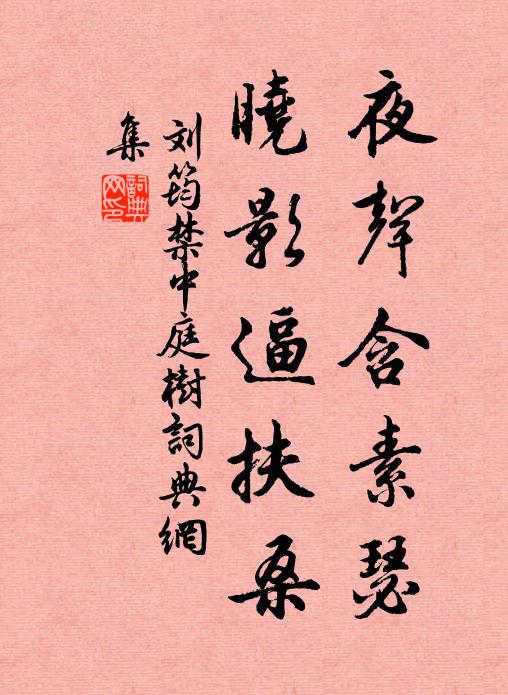 夜聲含素瑟
曉影逼扶桑
刘筠禁中庭樹詞典網
集
詞典网印